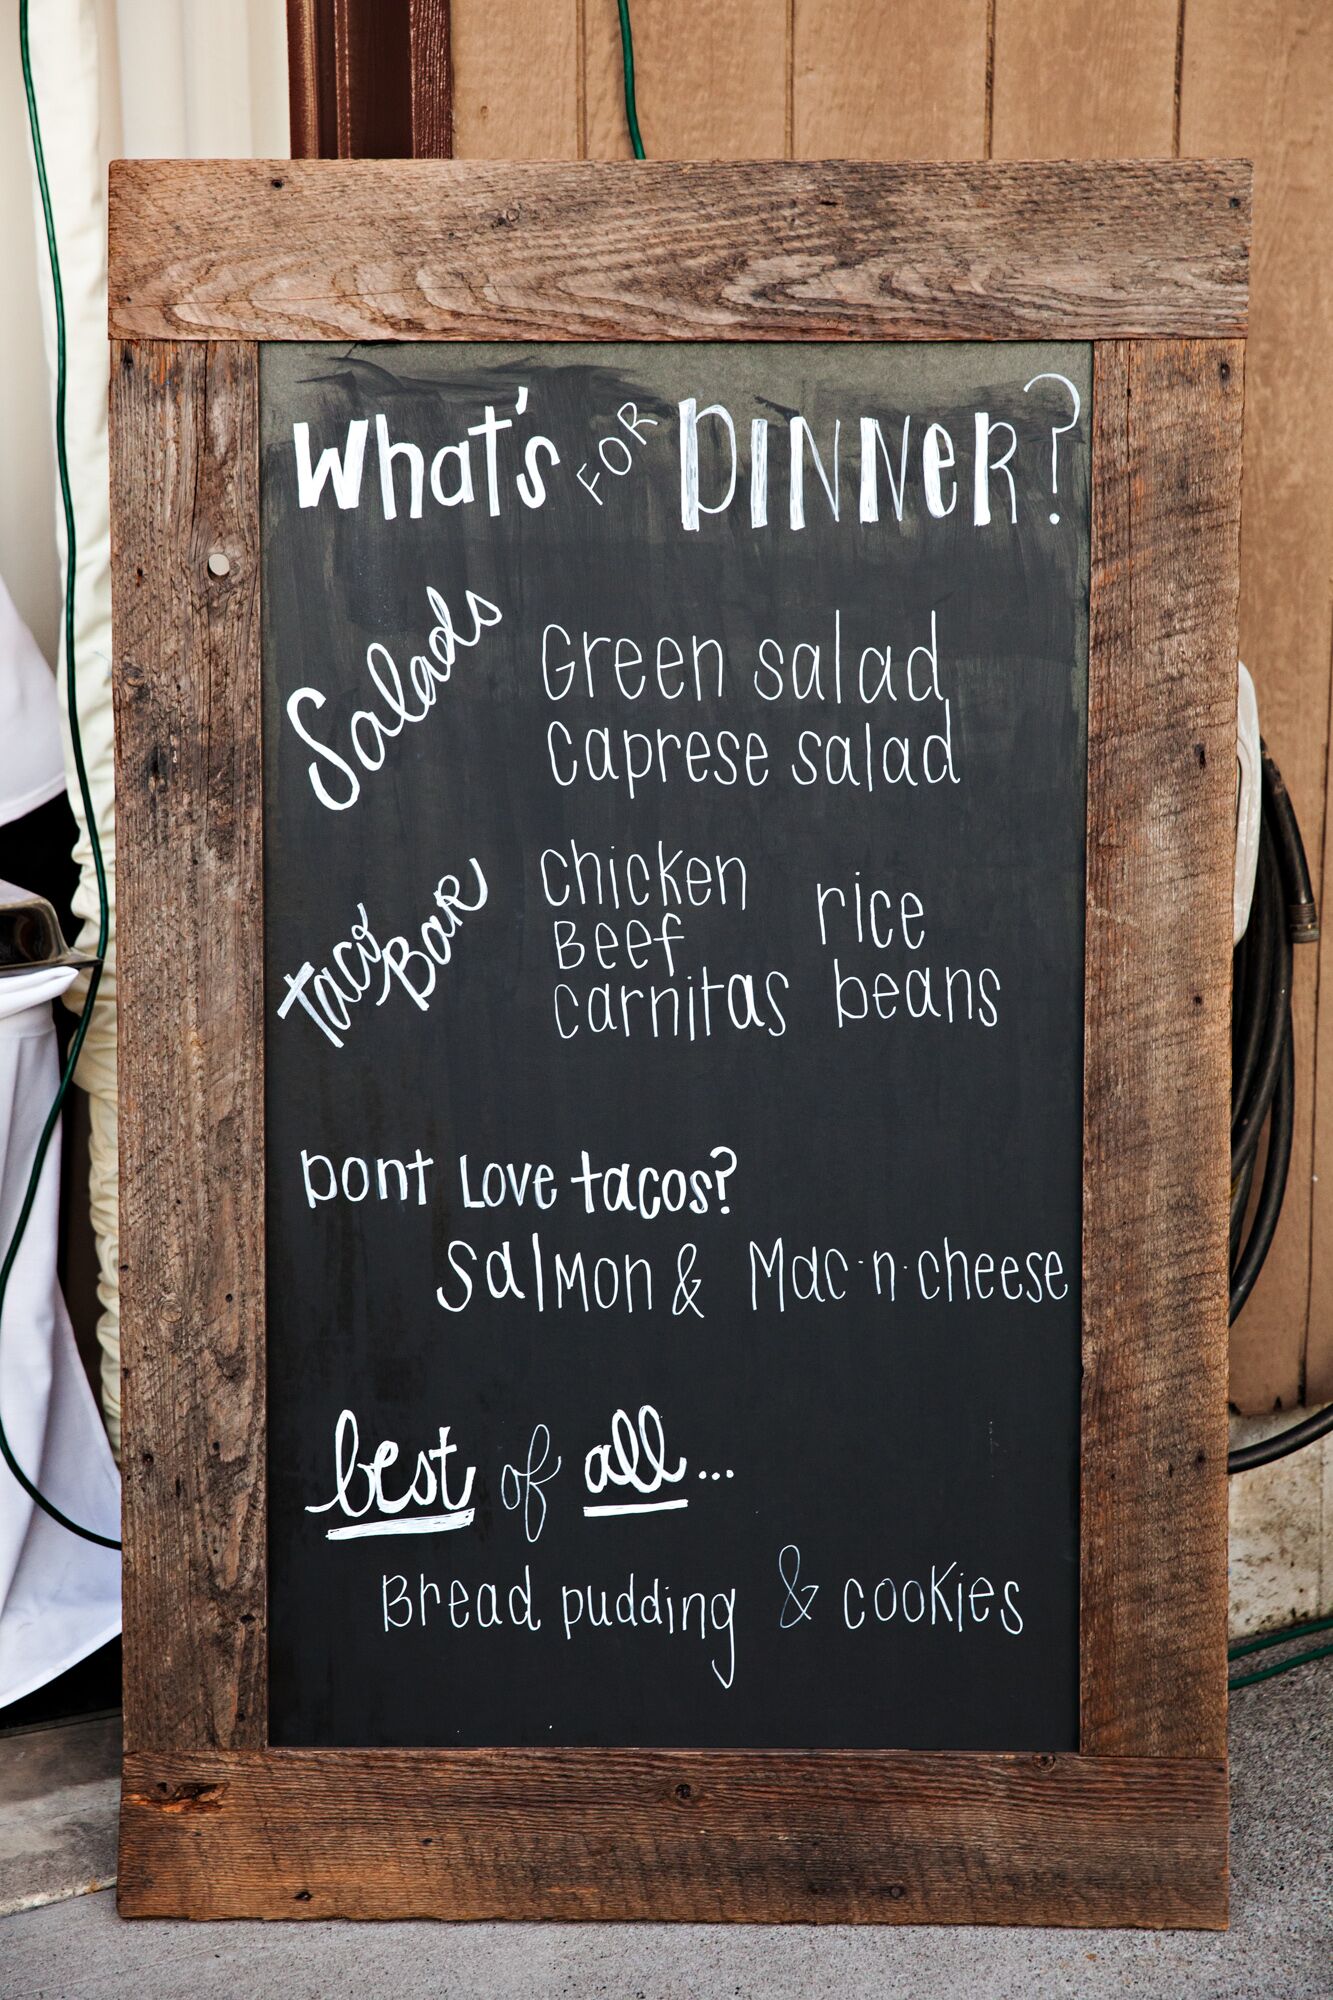 What's FOR DINNER?
Salads
Green salad
Caprese salad
Taco Bar
Chicken
Beef
Carnitas
rice
beans
Dont Love tacos?
Salmon & Mac·n·cheese
best of all...
Bread pudding & cookies